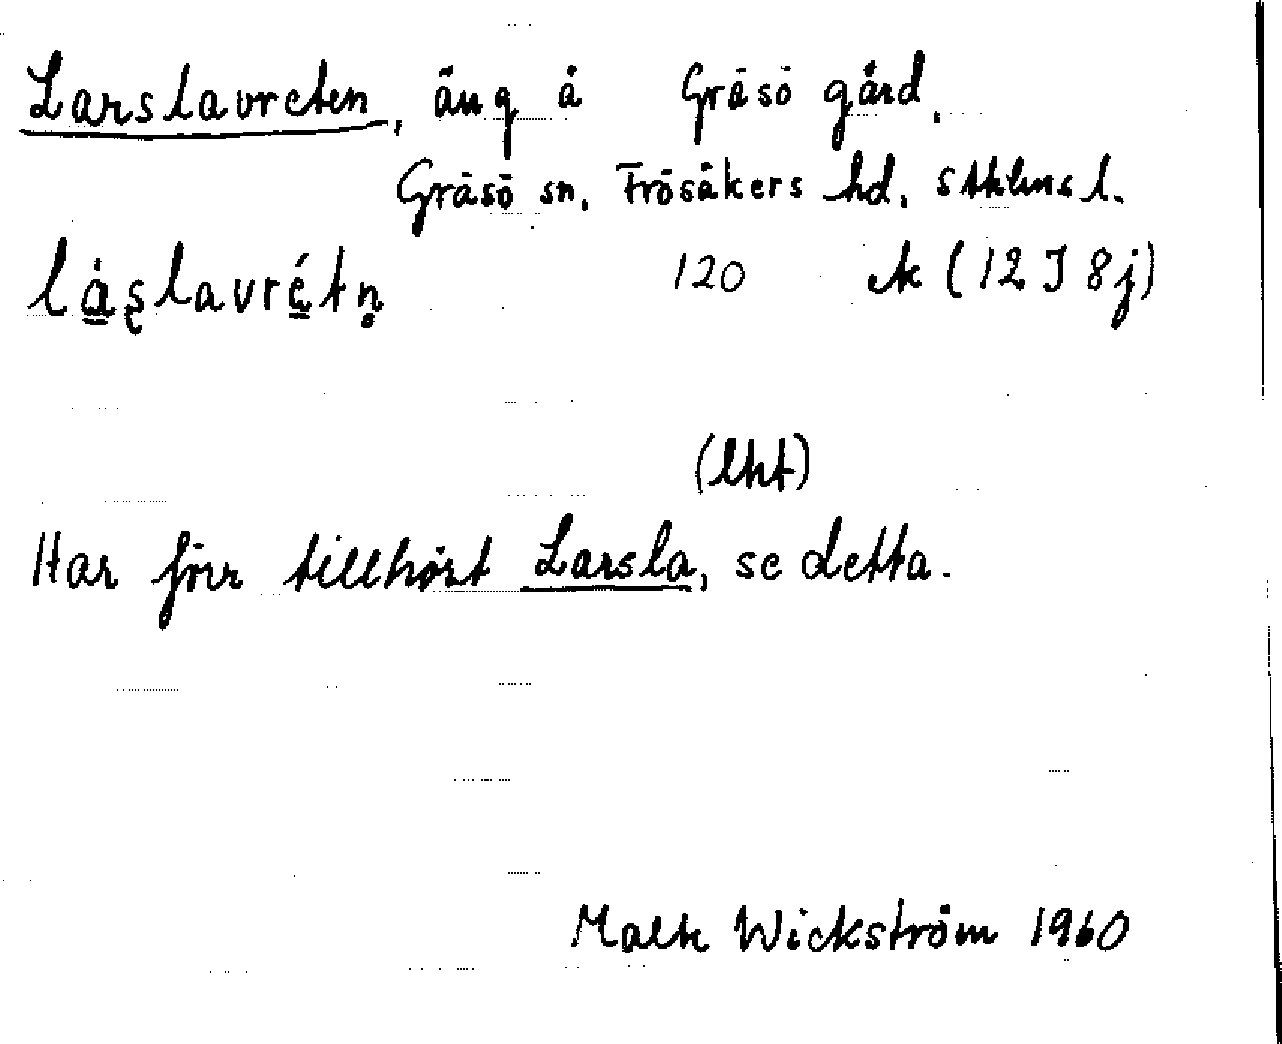 Larslavreten, äng å Gräsö gård,
Gräsö sn, Frösåkers hd, Sthlms l.
lá̱ʂlavré̱tn̥ 120 ek (12 I 8j)
(lht)
Har förr tillhört Larsla, se detta.
Malte Wickström 1960